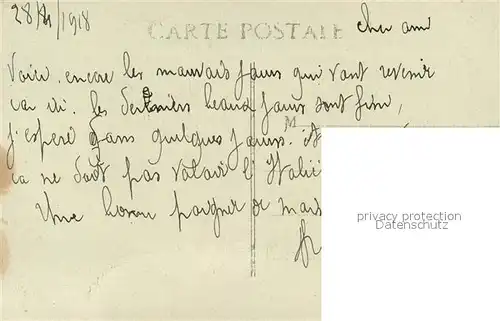 28/ /1918
CARTE POSTALE
cher ami
Voici encore les mauvais jours qui vont revenir
car ici les derniers beaux jours sont fini,
j'espere dans quelques jours
M
ca ne doit pas valoir l'Itali
Une bonne poignée de main
privacy protection
Datenschutz